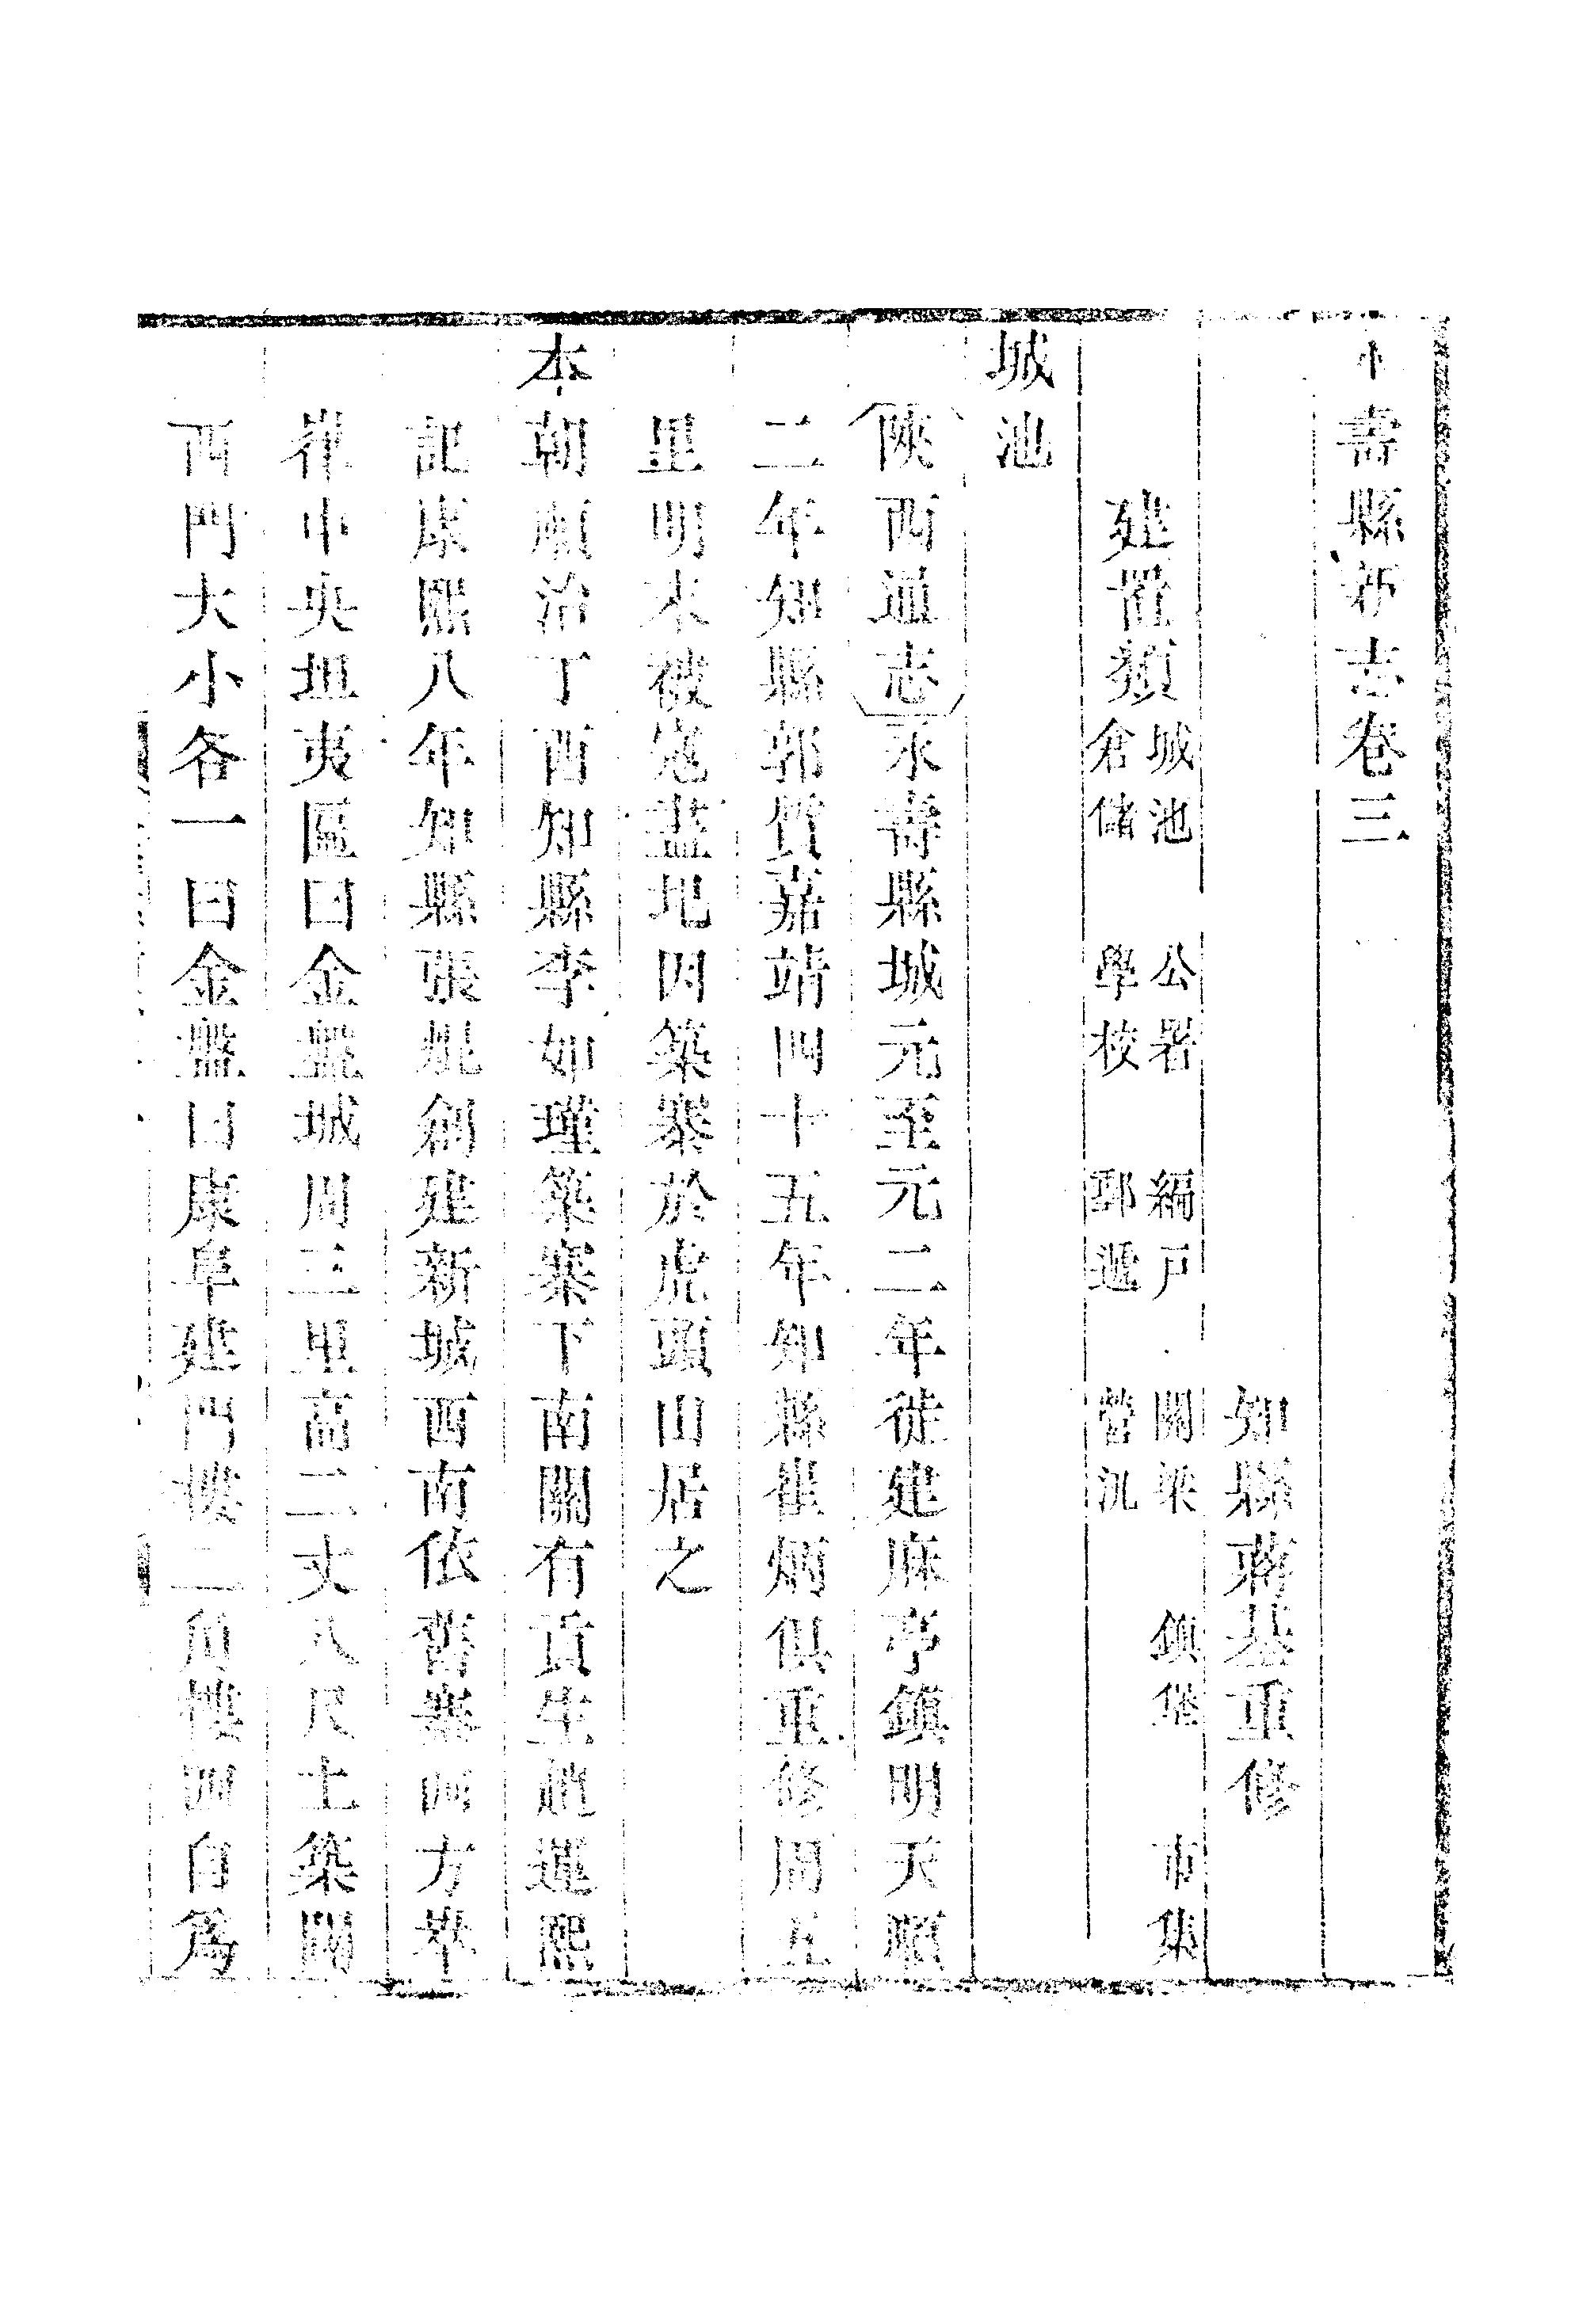 永壽縣新志卷三
知縣蔣基重修
建置類 城池 公署 編戶 關梁 鎮堡 市集
倉儲 學校 郵遞 營汛
城池
陝西通志永壽縣城元至元二年徙建麻亭鎮明天順
二年知縣郭質嘉靖四十五年知縣崔炳俱重修周五
里明末被寇盡圮因築寨於虎頭山居之
本朝順治丁酉知縣李如瑾築寨下南關有貢生趙運熙
記康熙八年知縣張焜創建新城西南依舊寨四方萃
嵂中央坦夷區曰金盤城周三里高二丈八尺土築闢
西門大小各一曰金盤曰康阜建門樓二角樓四自爲